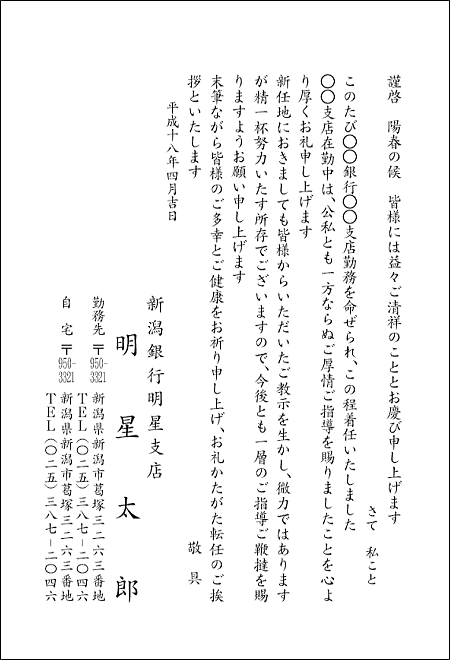 謹啓　陽春の候　皆様には益々ご清祥のこととお慶び申し上げます
さて　私こと
このたび〇〇銀行〇〇支店勤務を命ぜられ、この程着任いたしました
〇〇支店在勤中は、公私とも一方ならぬご厚情ご指導を賜りましたことを心よ
り厚くお礼申し上げます
新任地におきましても皆様からいただいたご教示を生かし、微力ではあります
が精一杯努力いたす所存でございますので、今後とも一層のご指導ご鞭撻を賜
りますようお願い申し上げます
末筆ながら皆様のご多幸とご健康をお祈り申し上げ、お礼かたがた転任のご挨
拶といたします
敬具
平成十八年四月吉日
新潟銀行明星支店
明星太郎
勤務先　〒950-3321　新潟県新潟市葛塚三二六三番地
ＴＥＬ（〇二五）三八七－二〇四六
自宅　〒950-3321　新潟県新潟市葛塚三二六三番地
ＴＥＬ（〇二五）三八七－二〇四六